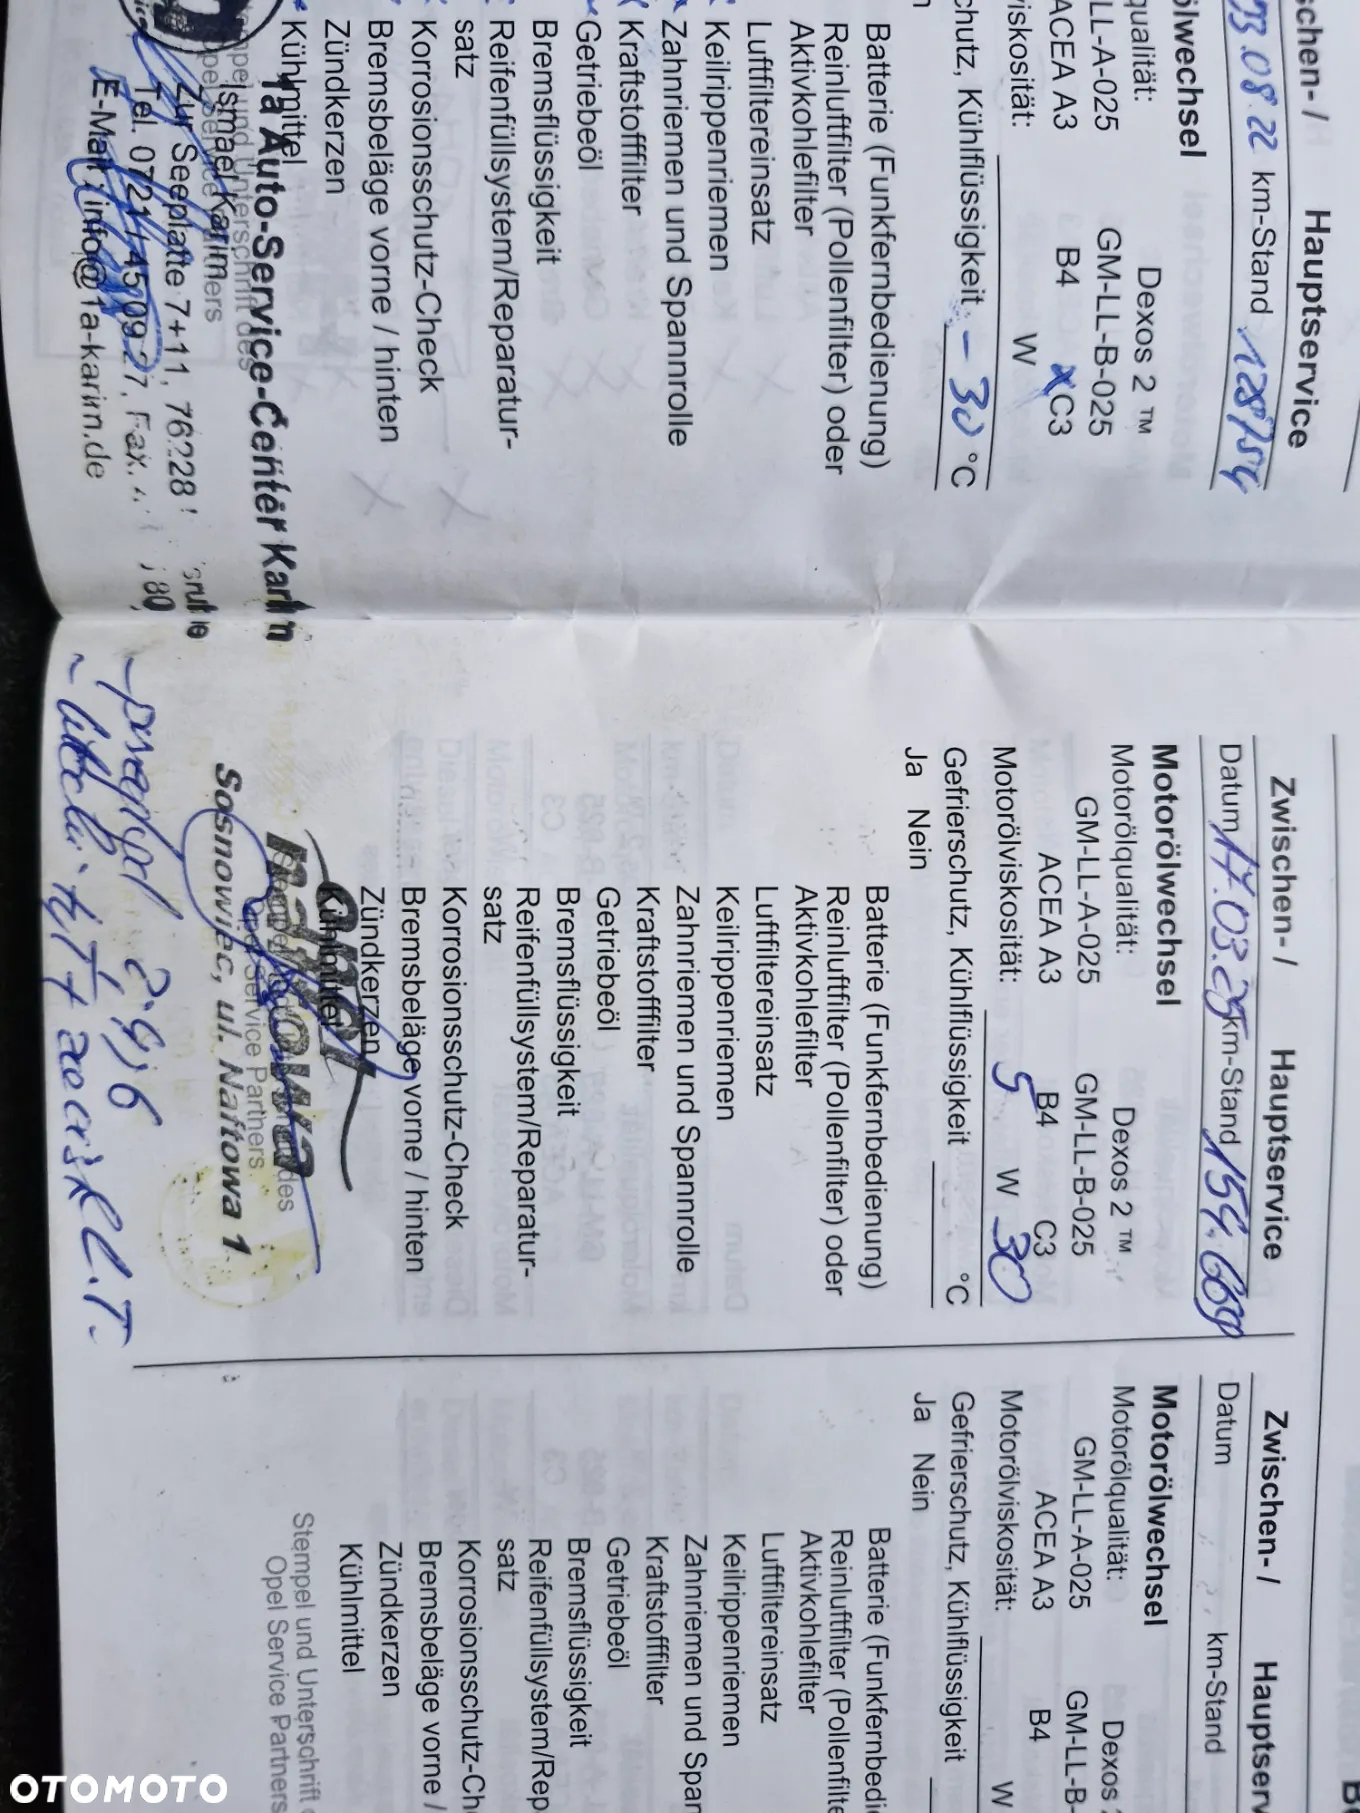 schen- / Hauptservice
03.08.22 km-Stand 128754
ölwechsel
qualität: Dexos 2 ™
LL-A-025 GM-LL-B-025
ACEA A3 B4 x C3
iskosität: W
chutz, Kühlflüssigkeit - 30 °C
n
Batterie (Funkfernbedienung)
Reinluftfilter (Pollenfilter) oder
Aktivkohlefilter
Luftfiltereinsatz
Keilrippenriemen
Zahnriemen und Spannrolle
Kraftstofffilter
Getriebeöl
Bremsflüssigkeit
Reifenfüllsystem/Reparatur-
satz
Korrosionsschutz-Check
Bremsbeläge vorne / hinten
Zündkerzen
Kühlmittel
1a Auto-Service-Center Karim
Ismael Karim
Zur Seeplatte 7+11, 76228
Tel. 0721 / 45 09 27, Fax.
E-Mail: info@1a-karim.de
Zwischen- / Hauptservice
Datum 17.03.25 km-Stand 154.669
Motorölwechsel
Motorölqualität: Dexos 2 ™
GM-LL-A-025 GM-LL-B-025
ACEA A3 B4 C3
Motorölviskosität: 5 W 30
Gefrierschutz, Kühlflüssigkeit °C
Ja Nein
Batterie (Funkfernbedienung)
Reinluftfilter (Pollenfilter) oder
Aktivkohlefilter
Luftfiltereinsatz
Keilrippenriemen
Zahnriemen und Spannrolle
Kraftstofffilter
Getriebeöl
Bremsflüssigkeit
Reifenfüllsystem/Reparatur-
satz
Korrosionsschutz-Check
Bremsbeläge vorne / hinten
Zündkerzen
Kühlmittel
Opel
Service Partners.
Sosnowiec, ul. Naftowa 1
Zwischen- / Hauptserv
Datum km-Stand
Motorölwechsel
Motorölqualität: Dexos 2
GM-LL-A-025 GM-LL-B-
ACEA A3 B4
Motorölviskosität: W
Gefrierschutz, Kühlflüssigkeit
Ja Nein
Batterie (Funkfernbedi
Reinluftfilter (Pollenfilte
Aktivkohlefilter
Luftfiltereinsatz
Keilrippenriemen
Zahnriemen und Span
Kraftstofffilter
Getriebeöl
Bremsflüssigkeit
Reifenfüllsystem/Rep
satz
Korrosionsschutz-Ch
Bremsbeläge vorne /
Zündkerzen
Kühlmittel
Stempel und Unterschrift
Opel Service Partners
OTOMOTO